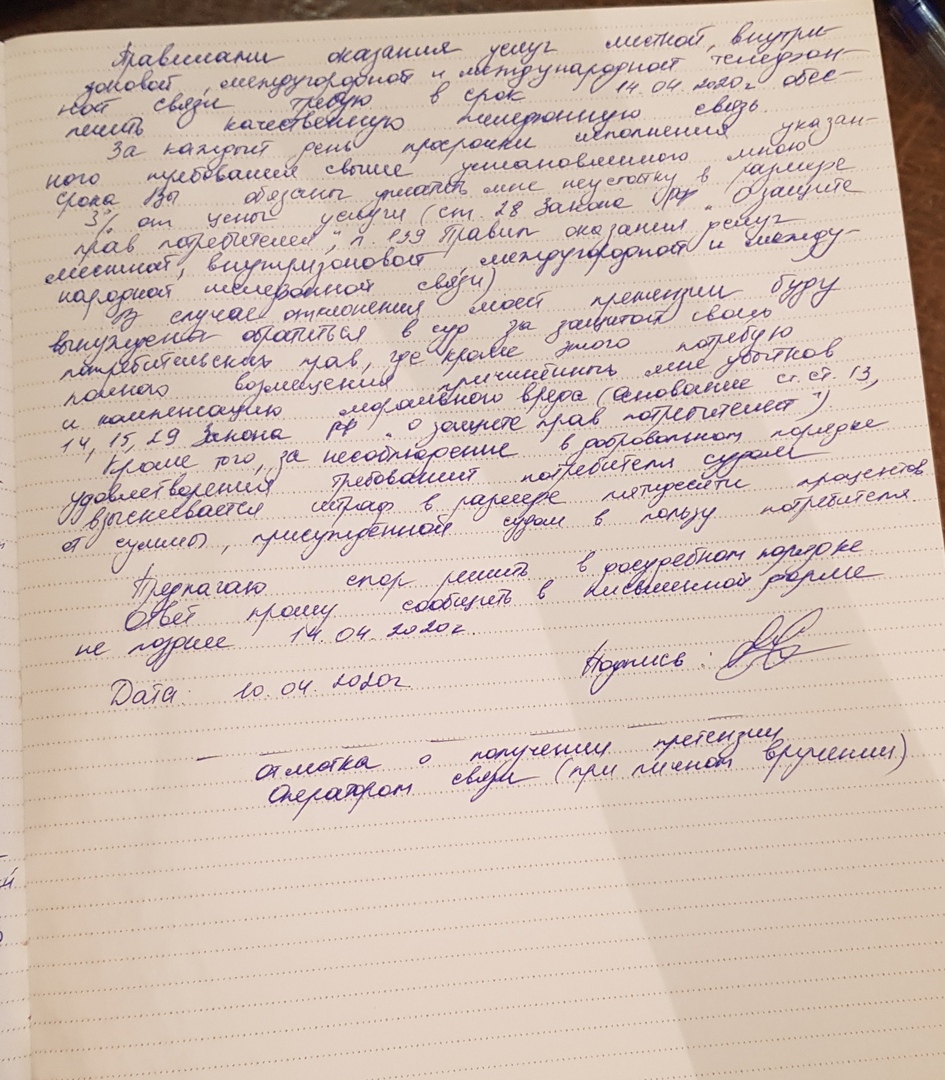 Правилами оказания услуг местной, внутри-
зоновой, междугородной и международной телефон-
ной связи требую в срок 14.04.2020г обес-
печить качественную телефонную связь.
За каждый день просрочки исполнения указан-
ного требования свыше установленного мною
срока Вы обязаны уплатить мне неустойку в размере
3% от цены услуги (ст. 28 Закона РФ „О защите
прав потребителей", п. 139 Правил оказания услуг
местной, внутризоновой, междугородной и между-
народной телефонной связи)
В случае отклонения моей претензии буду
вынуждена обратиться в суд за защитой своих
потребительских прав, где кроме этого потребую
полного возмещения причинённых мне убытков
и компенсацию морального вреда (основание ст.ст. 13,
14, 15, 29 Закона РФ „О защите прав потребителей")
Кроме того, за несоблюдение в добровольном порядке
удовлетворения требований потребителя судом
взыскивается штраф в размере пятидесяти процентов
от суммы, присуждённой судом в пользу потребителя
Предлагаю спор решить в досудебном порядке
Ответ прошу сообщить в письменной форме
не позднее 14.04.2020г.
Дата: 10.04.2020г Подпись:
отметка о получении претензии
Оператором связи (при личном вручении)